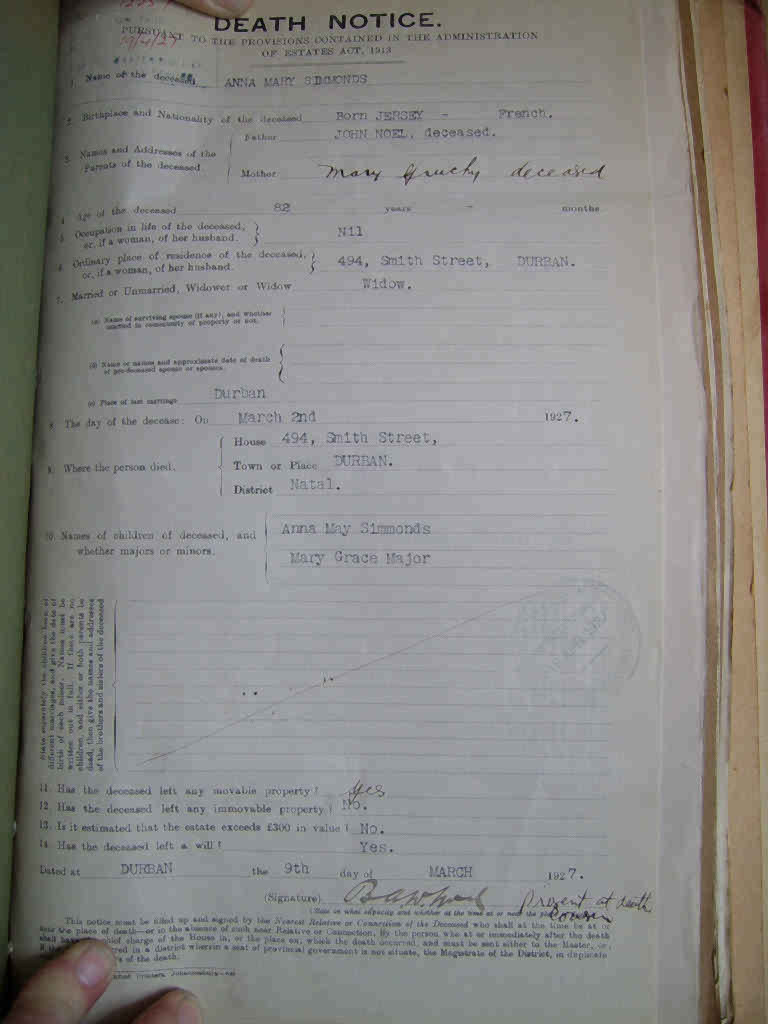 DEATH NOTICE.
PURSUANT TO THE PROVISIONS CONTAINED IN THE ADMINISTRATION
OF ESTATES ACT, 1913
1. Name of the deceased ANNA MARY SIMMONDS
2. Birthplace and Nationality of the deceased Born JERSEY - French.
3. Names and Addresses of the Parents of the deceased.
Father JOHN NOEL, deceased.
Mother Mary Gruchy deceased
4. Age of the deceased 82 years - months
5. Occupation in life of the deceased, or, if a woman, of her husband. Nil
6. Ordinary place of residence of the deceased, or, if a woman, of her husband. 494, Smith Street, DURBAN.
7. Married or Unmarried, Widower or Widow Widow.
(a) Name of surviving spouse (if any), and whether
married in community of property or not.
(b) Name or names and approximate date of death
of pre-deceased spouse or spouses.
(c) Place of last marriage Durban
8. The day of the decease: On March 2nd 1927.
9. Where the person died.
House 494, Smith Street,
Town or Place DURBAN.
District Natal.
10. Names of children of deceased, and
whether majors or minors.
Anna May Simmonds
Mary Grace Major
State separately the children born of
different marriages, and give the date of
birth of each minor. Names must be
written out in full. If there are no
children, and either or both parents be
dead, then give the names and addresses
of the brothers and sisters of the deceased
11. Has the deceased left any movable property? Yes
12. Has the deceased left any immovable property? No.
13. Is it estimated that the estate exceeds £300 in value? No.
14. Has the deceased left a will? Yes.
Dated at DURBAN the 9th day of MARCH 1927.
(Signature) Present at death
Cousin
(State in what capacity and whether at the time at or near the
This notice must be filled up and signed by the Nearest Relative or Connection of the Deceased who shall at the time be at or
near the place of death—or in the absence of such near Relative or Connection, by the person who at or immediately after the death
shall have chief charge of the House in, or the place on, which the death occurred, and must be sent either to the Master, or,
if the in a district wherein a seat of provincial government is not situate, the Magistrate of the District, in duplicate
of the death.
Printers Johannesburg